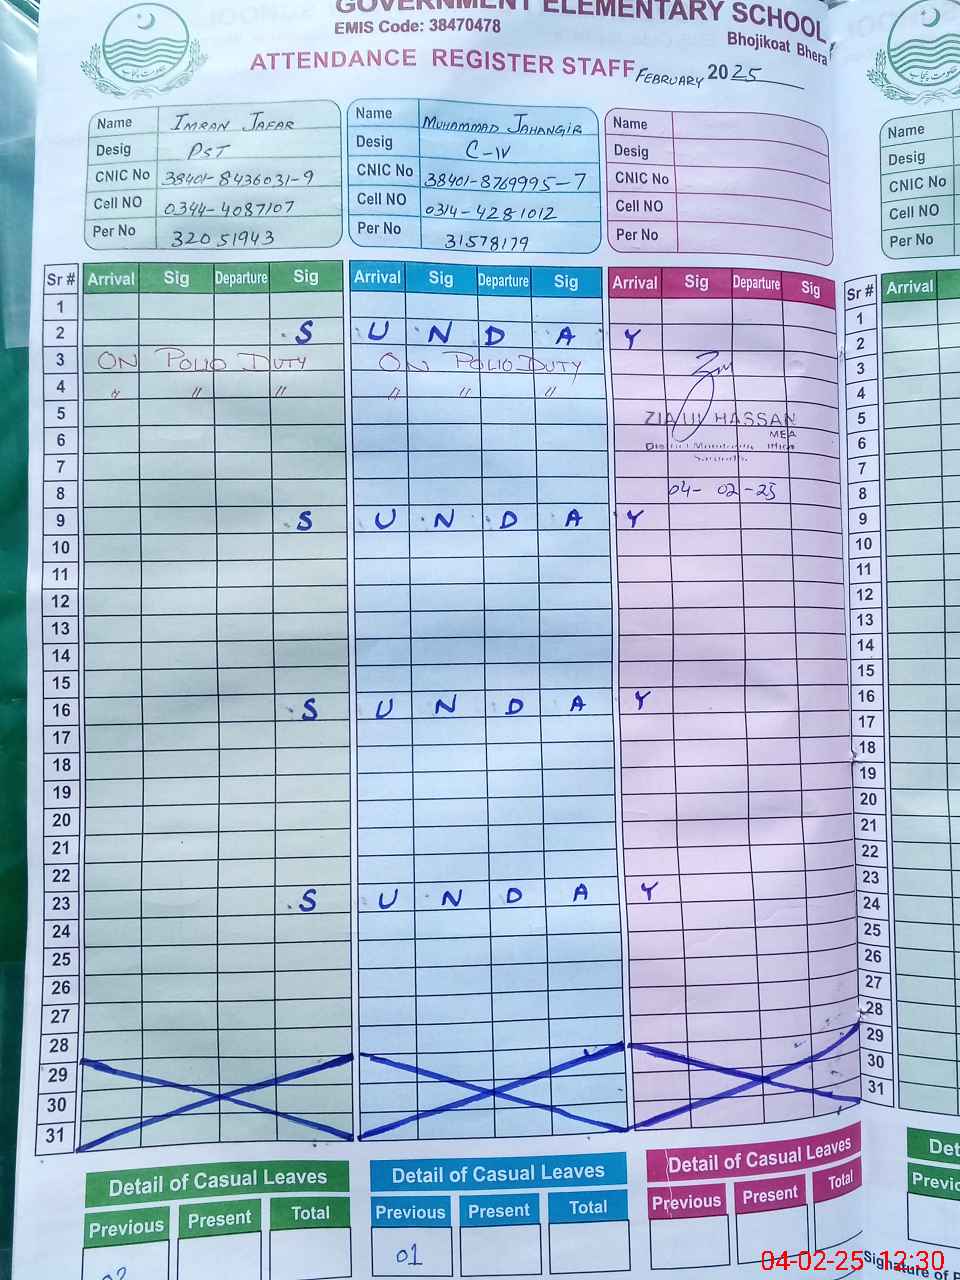 GOVERNMENT ELEMENTARY SCHOOL
EMIS Code: 38470478
Bhojikoat Bhera
ATTENDANCE REGISTER STAFF FEBRUARY 2025
حکومت پنجاب
Name IMRAN JAFAR
Desig PST
CNIC No 38401-8436031-9
Cell NO 0344-4087107
Per No 32051943
Name MUHAMMAD JAHANGIR
Desig C-IV
CNIC No 38401-8769995-7
Cell NO 0314-4281012
Per No 31578179
Name
Desig
CNIC No
Cell NO
Per No
Name
Desig
CNIC No
Cell NO
Per No
Sr # Arrival Sig Departure Sig Arrival Sig Departure Sig Arrival Sig Departure Sig Sr # Arrival
1 1
2 S U N D A Y 2
3 ON POLIO DUTY ON POLIO DUTY 3
4 " " " " " " 4
5 ZIA UL HASSAN 5
MEA
6 District Monitoring Office 6
Sargodha
7 7
8 04-02-25 8
9 S U N D A Y 9
10 10
11 11
12 12
13 13
14 14
15 15
16 S U N D A Y 16
17 17
18 18
19 19
20 20
21 21
22 22
23 S U N D A Y 23
24 24
25 25
26 26
27 27
28 28
29 29
30 30
31 31
Detail of Casual Leaves Detail of Casual Leaves Detail of Casual Leaves Det
Previous Present Total Previous Present Total Previous Present Total Previo
02 01
04-02-25 12:30
Signature of